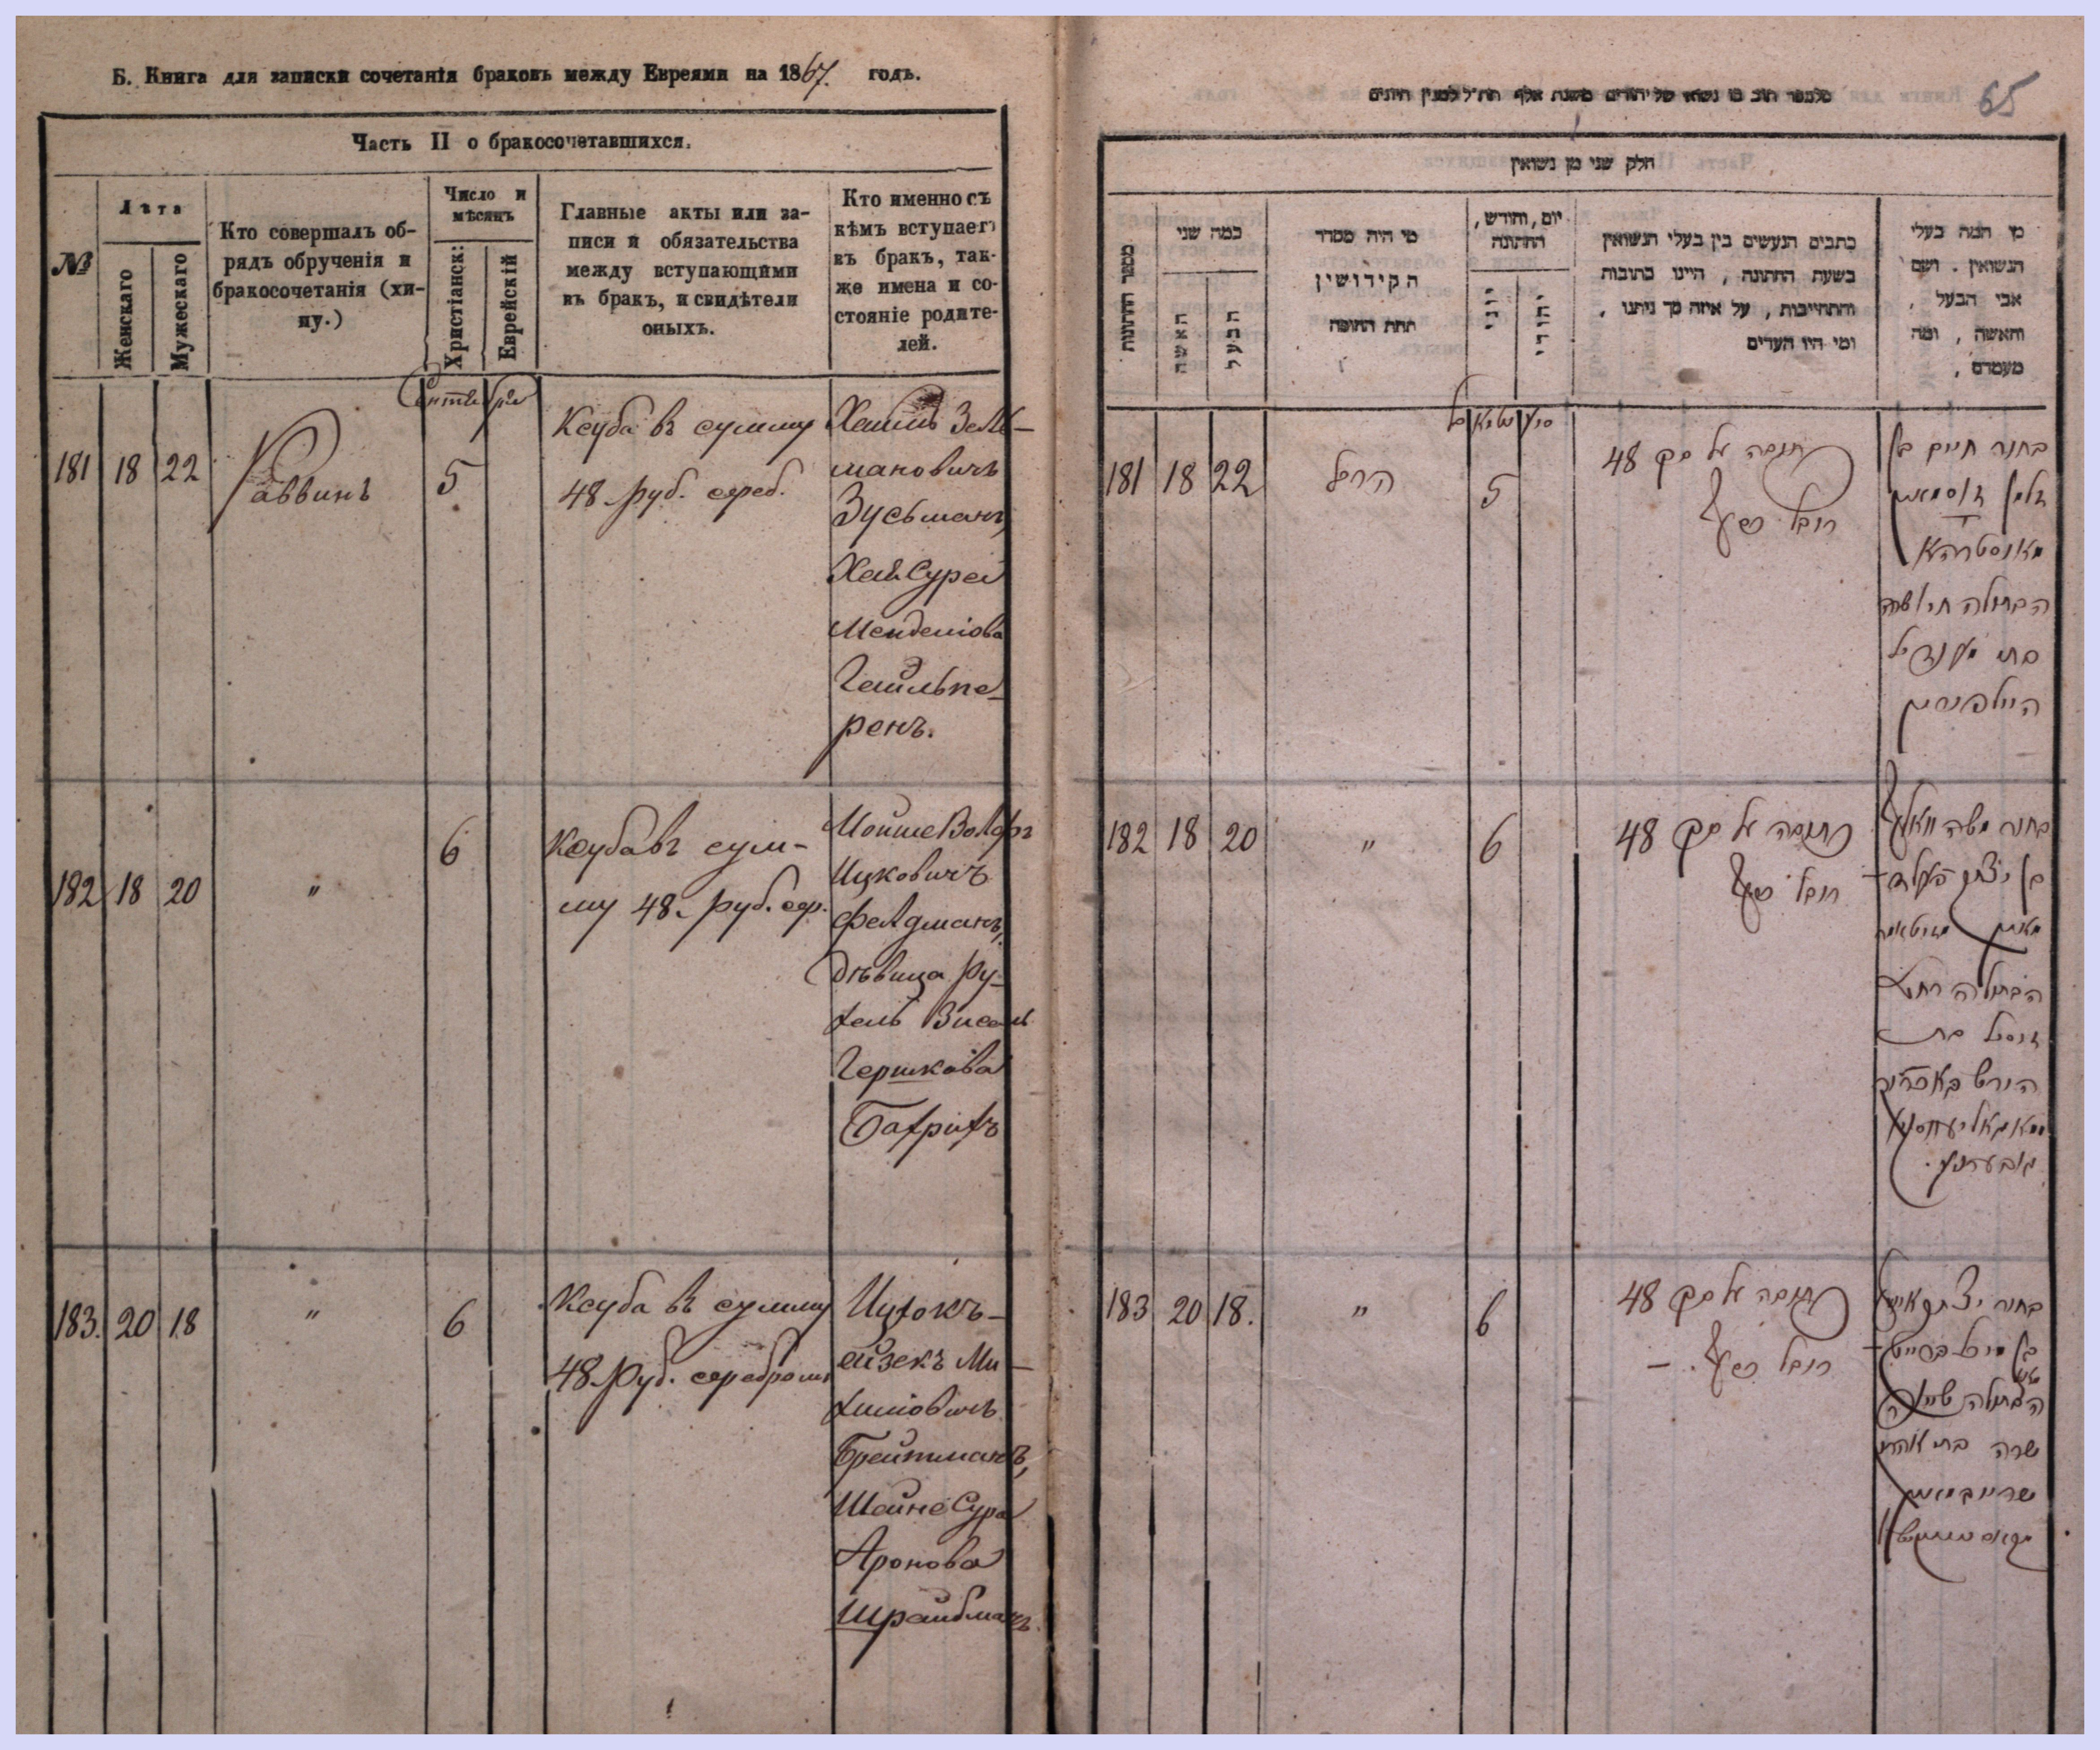 Б. Книга для записки сочетанія браковъ между Евреями на 1867. годъ.
Часть II о бракосочетавшихся.
№
Лѣта
Женскаго
Мужескаго
Кто совершалъ об-
рядъ обрученія и
бракосочетанія (хи-
пу.)
Число и
мѣсяцъ
Христіанск:
Еврейскій
Главные акты или за-
писи и обязательства
между вступающими
въ бракъ, и свидѣтели
оныхъ.
Кто именно съ
кѣмъ вступаетъ
въ бракъ, так-
же имена и со-
стояніе родите-
лей.
Сентября
181 18 22 Раввинъ 5
Ксуба въ сумму
48 руб. сереб.
Хаимъ Зель-
мановичъ
Зусьманъ,
Хая Сура
Менделіова
Гальпе-
ренъ.
182 18 20 " 6
Ксуба въ сум-
му 48 руб. сер.
Мойше Волфъ
Ицковичъ
Фелдманъ,
дѣвица Ру-
хель Зисель
Гершкова
Бахрихъ
183. 20 18 " 6
Ксуба въ сумму
48 руб. серебромъ
Ицхокъ-
айзекъ Ми-
хиліовичъ
Брейтманъ,
Шейне Сура
Аронова
Шрайбманъ.
65
חלק שני מן נשואין
מספר החתונות
כמה שני
האשה
הבעל
מי היה מסדר
הקידושין
תחת החופה
יום, וחודש,
החתונה
יוני
יהודי
כתבים הנעשים בין בעלי הנשואין
בשעת החתונה, היינו כתובות
והתחייבות, על איזה סך ניתנו,
ומי היו העדים
מן המה בעלי
הנשואין. ושם
אבי הבעל,
והאשה, ומה
מעמדם,
181 18 22 5
כתובה על סך 48
רובל כסף
בחור חיים בן
זלמן זוסמאן
הבתולה חי' שרה
בת מענדיל
היילפרין
182 18 20 " 6
כתובה על סך 48
רובל כסף
בחור משה וואלף
בן יצחק פעלד-
מאן
הבתולה רחל
זיסל בת
הירש
183 20 18. " 6
כתובה על סך 48
רובל כסף. –
בחור יצחק אייזיק
הבתולה שיינה
שרה בת אהרן
שרייבמאן